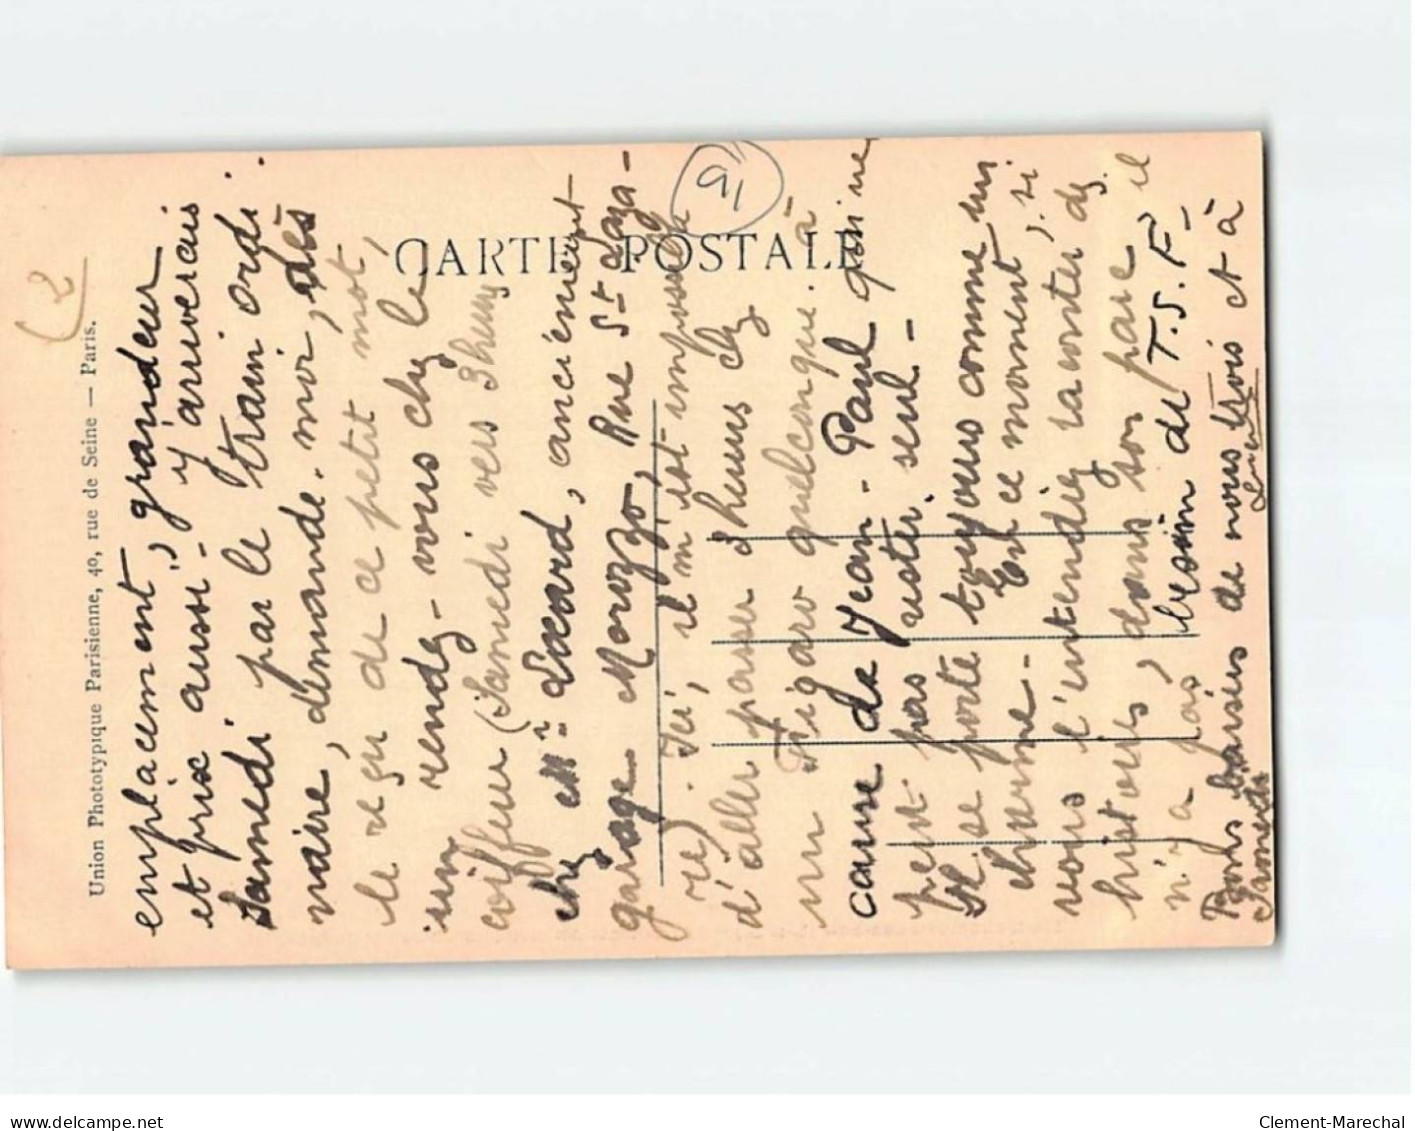 (2
Union Phototypique Parisienne, 40, rue de Seine — Paris.
CARTE POSTALE
91
emplacement, grandeur
et prix aussi. J'y arriverais
Samedi par le train ordi-
naire, demande-moi, dès
le reçu de ce petit mot,
un rendez-vous chez le
coiffeur (Samedi vers 3 heures
chez Mr Locard, anciènement
garage Morozzo, Rue St Laza-
re). Ici, il m'est impossible
d'aller passer 2 heures chez
un Figaro quelconque à
cause de Jean-Paul qui ne
peut pas rester seul -
Il se porte toujours comme un
charme - En ce moment, si
vous l'entendiez raconter des
histoires, dans son parc il
n'y a pas besoin de T.S.F. -
Bons baisers de nous trois et à
Samedi